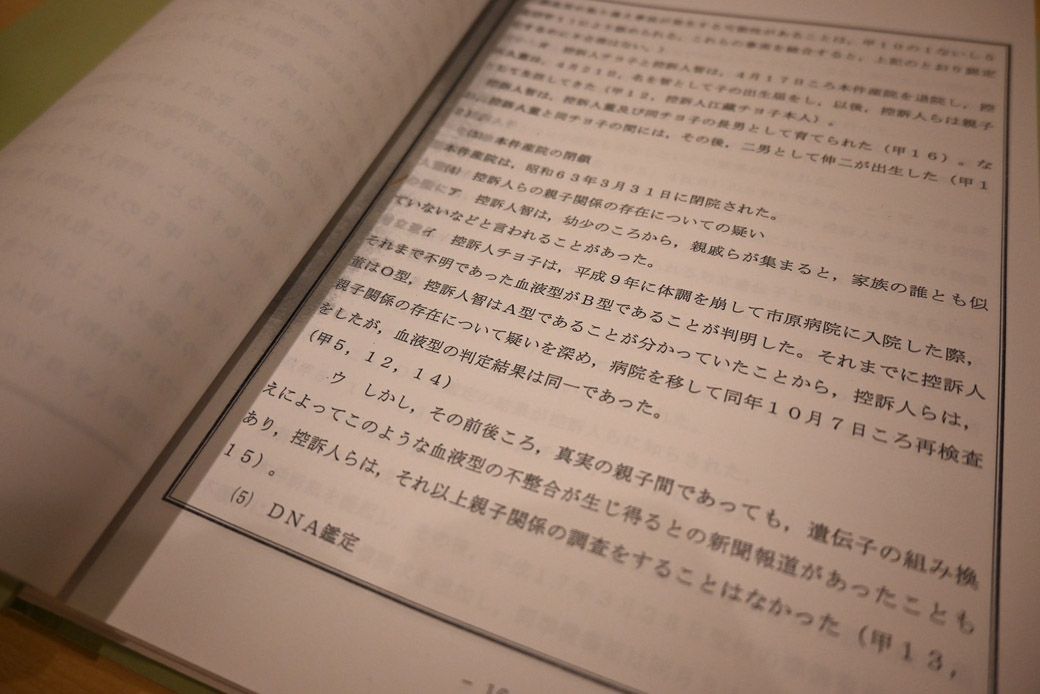 があることは，甲１０の１ないし５
認められる。これらの事実を総合すると，上記のとおり認定
はない。）
オ 控訴人チヨ子と控訴人智は，４月１７日ころ本件産院を退院し，控
４月２１日，名を智として子の出生届をし，以後，控訴人らは親子
として生活してきた（甲１２，控訴人江蔵チヨ子本人）。
控訴人智は，控訴人董及び同チヨ子の長男として育てられた（甲１６）。な
控訴人董と同チヨ子の間には，その後，二男として伸二が出生した（甲１
本件産院の閉鎖
本件産院は，昭和６３年３月３１日に閉院された。
(4) 控訴人らの親子関係の存在についての疑い
ア 控訴人智は，幼少のころから，親戚らが集まると，家族の誰とも似
ていないなどと言われることがあった。
イ 控訴人チヨ子は，平成９年に体調を崩して市原病院に入院した際，
それまで不明であった血液型がＢ型であることが判明した。それまでに控訴人
董はＯ型，控訴人智はＡ型であることが分かっていたことから，控訴人らは，
親子関係の存在について疑いを深め，病院を移して同年１０月７日ころ再検査
をしたが，血液型の判定結果は同一であった。
（甲５，１２，１４）
ウ しかし，その前後ころ，真実の親子間であっても，遺伝子の組み換
えによってこのような血液型の不整合が生じ得るとの新聞報道があったことも
あり，控訴人らは，それ以上親子関係の調査をすることはなかった（甲１３，
１５）。
(5) ＤＮＡ鑑定